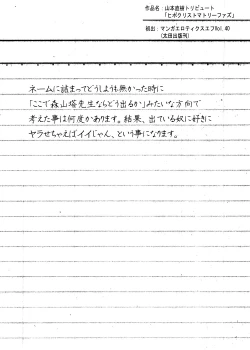 作品名:山本直樹トリビュート
「ヒポクリストマトリーファズ」
初出:マンガエロティクスエフVol.40
(太田出版刊)
ネームに詰まってどうしようも無かった時に
「ここで森山塔先生ならどう出るか」みたいな方向で
考えた事は何度かあります。結果、出ている奴に好きに
ヤラせちゃえばイイじゃん、という事になります。